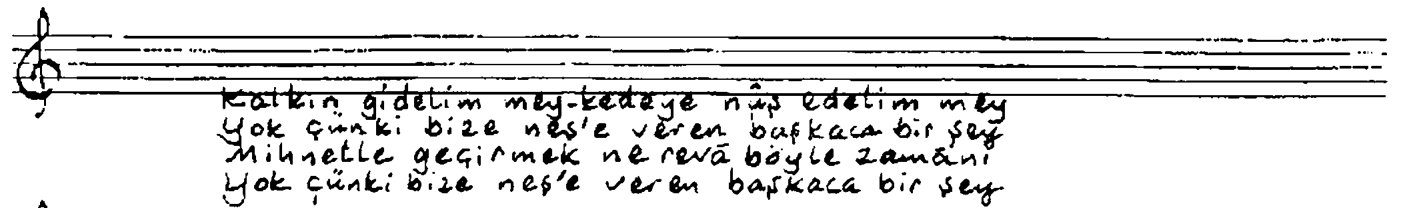 Kalkın gidelim mey-kedeye nûş edelim mey
Yok çünki bize neş'e veren başkaca bir şey
Mihnetle geçirmek ne revâ böyle zamânı
Yok çünki bize neş'e veren başkaca bir şey